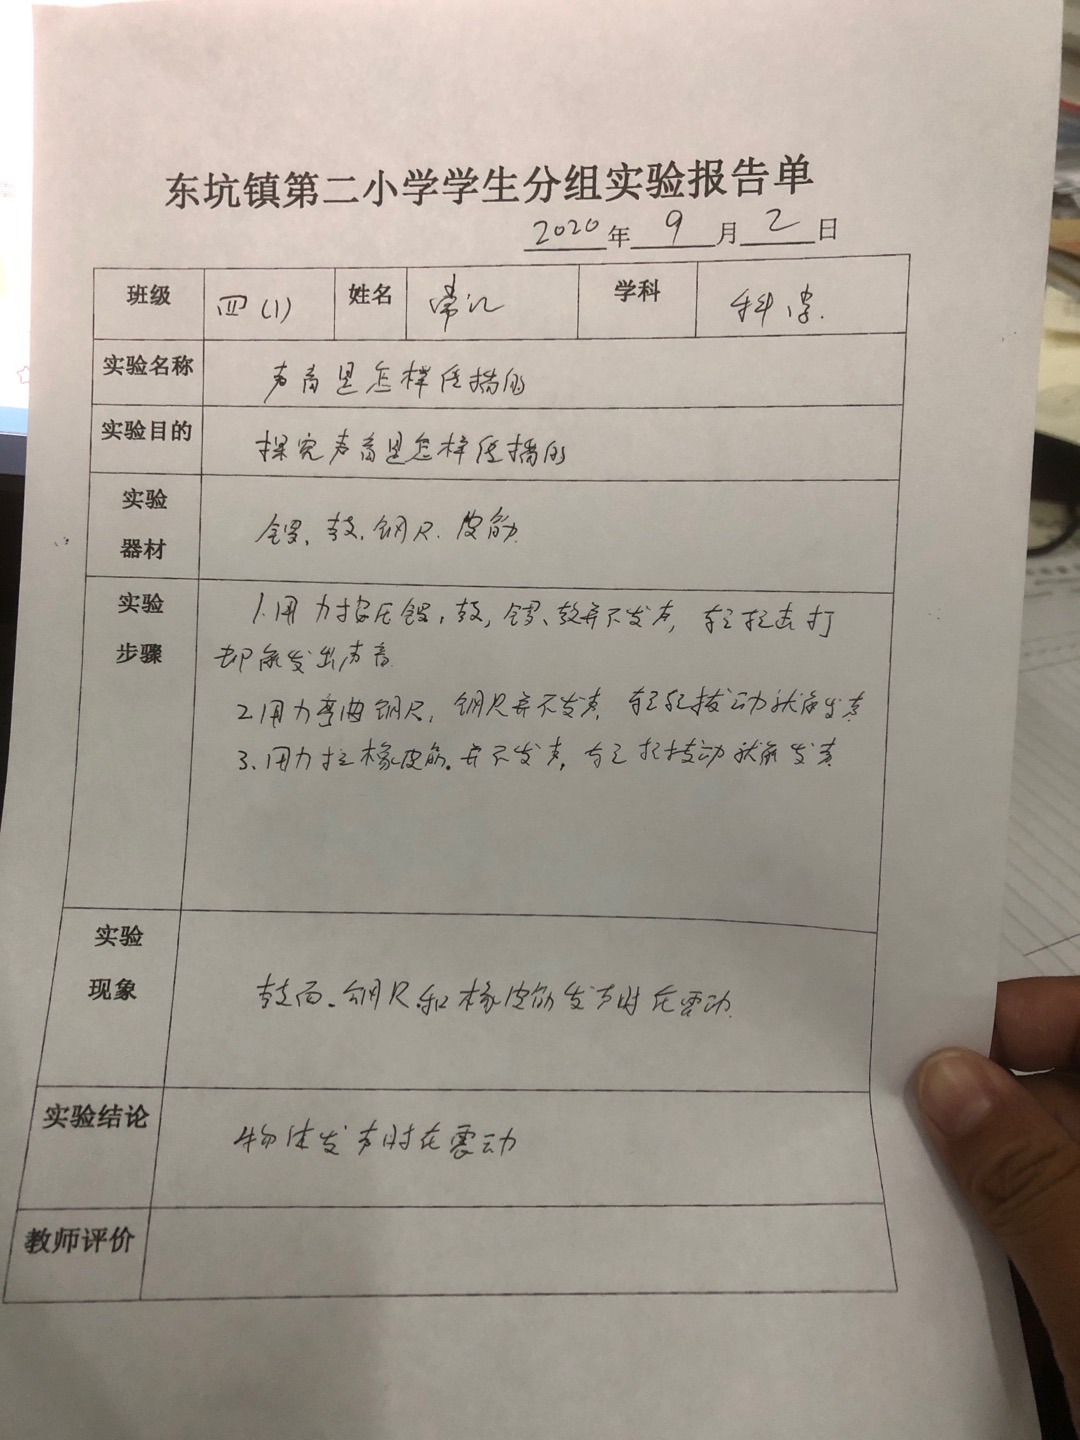 东坑镇第二小学学生分组实验报告单
2020年 9 月 2 日
班级 四(1) 姓名 学科 科学.
实验名称 声音是怎样传播的
实验目的 探究声音是怎样传播的
实验器材 锣、鼓、钢尺、皮筋.
实验步骤 1.用力按压锣、鼓，锣、鼓并不发声，轻轻击打
却能发出声音
2.用力弯曲钢尺，钢尺并不发声，轻轻拨动就能发声
3、用力拉橡皮筋。并不发声，轻轻拨动就能发声
实验现象 鼓面、钢尺和橡皮筋发声时在震动.
实验结论 物体发声时在震动
教师评价